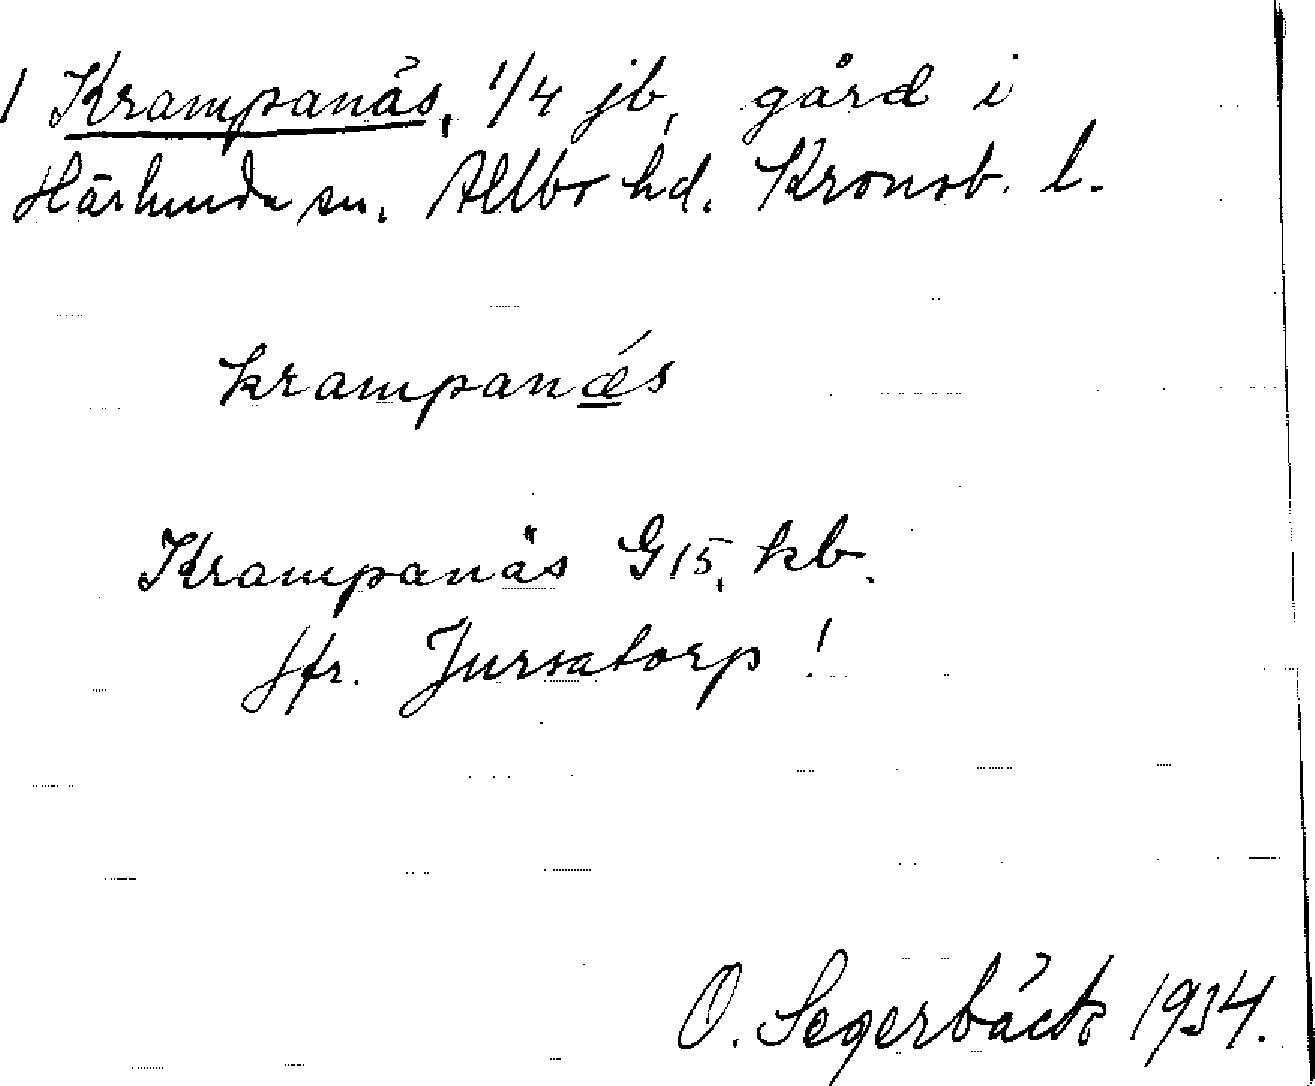 1 Krampanäs, 1/4 jb, gård i
Härlunda sn. Allbo hd. Kronob. l.
krampanǽs
Krampanäs G15, kb.
Jfr. Jursatorp!
O. Segerbäck 1934.